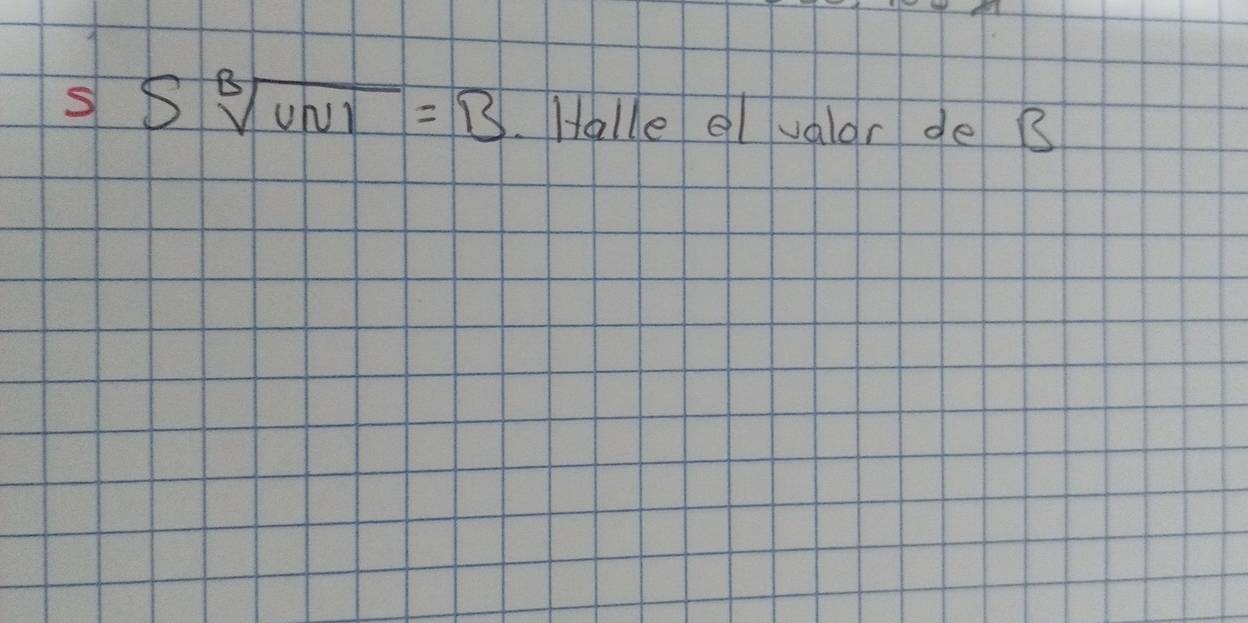 S S ᴮ√UNI = B. Halle el valor de B